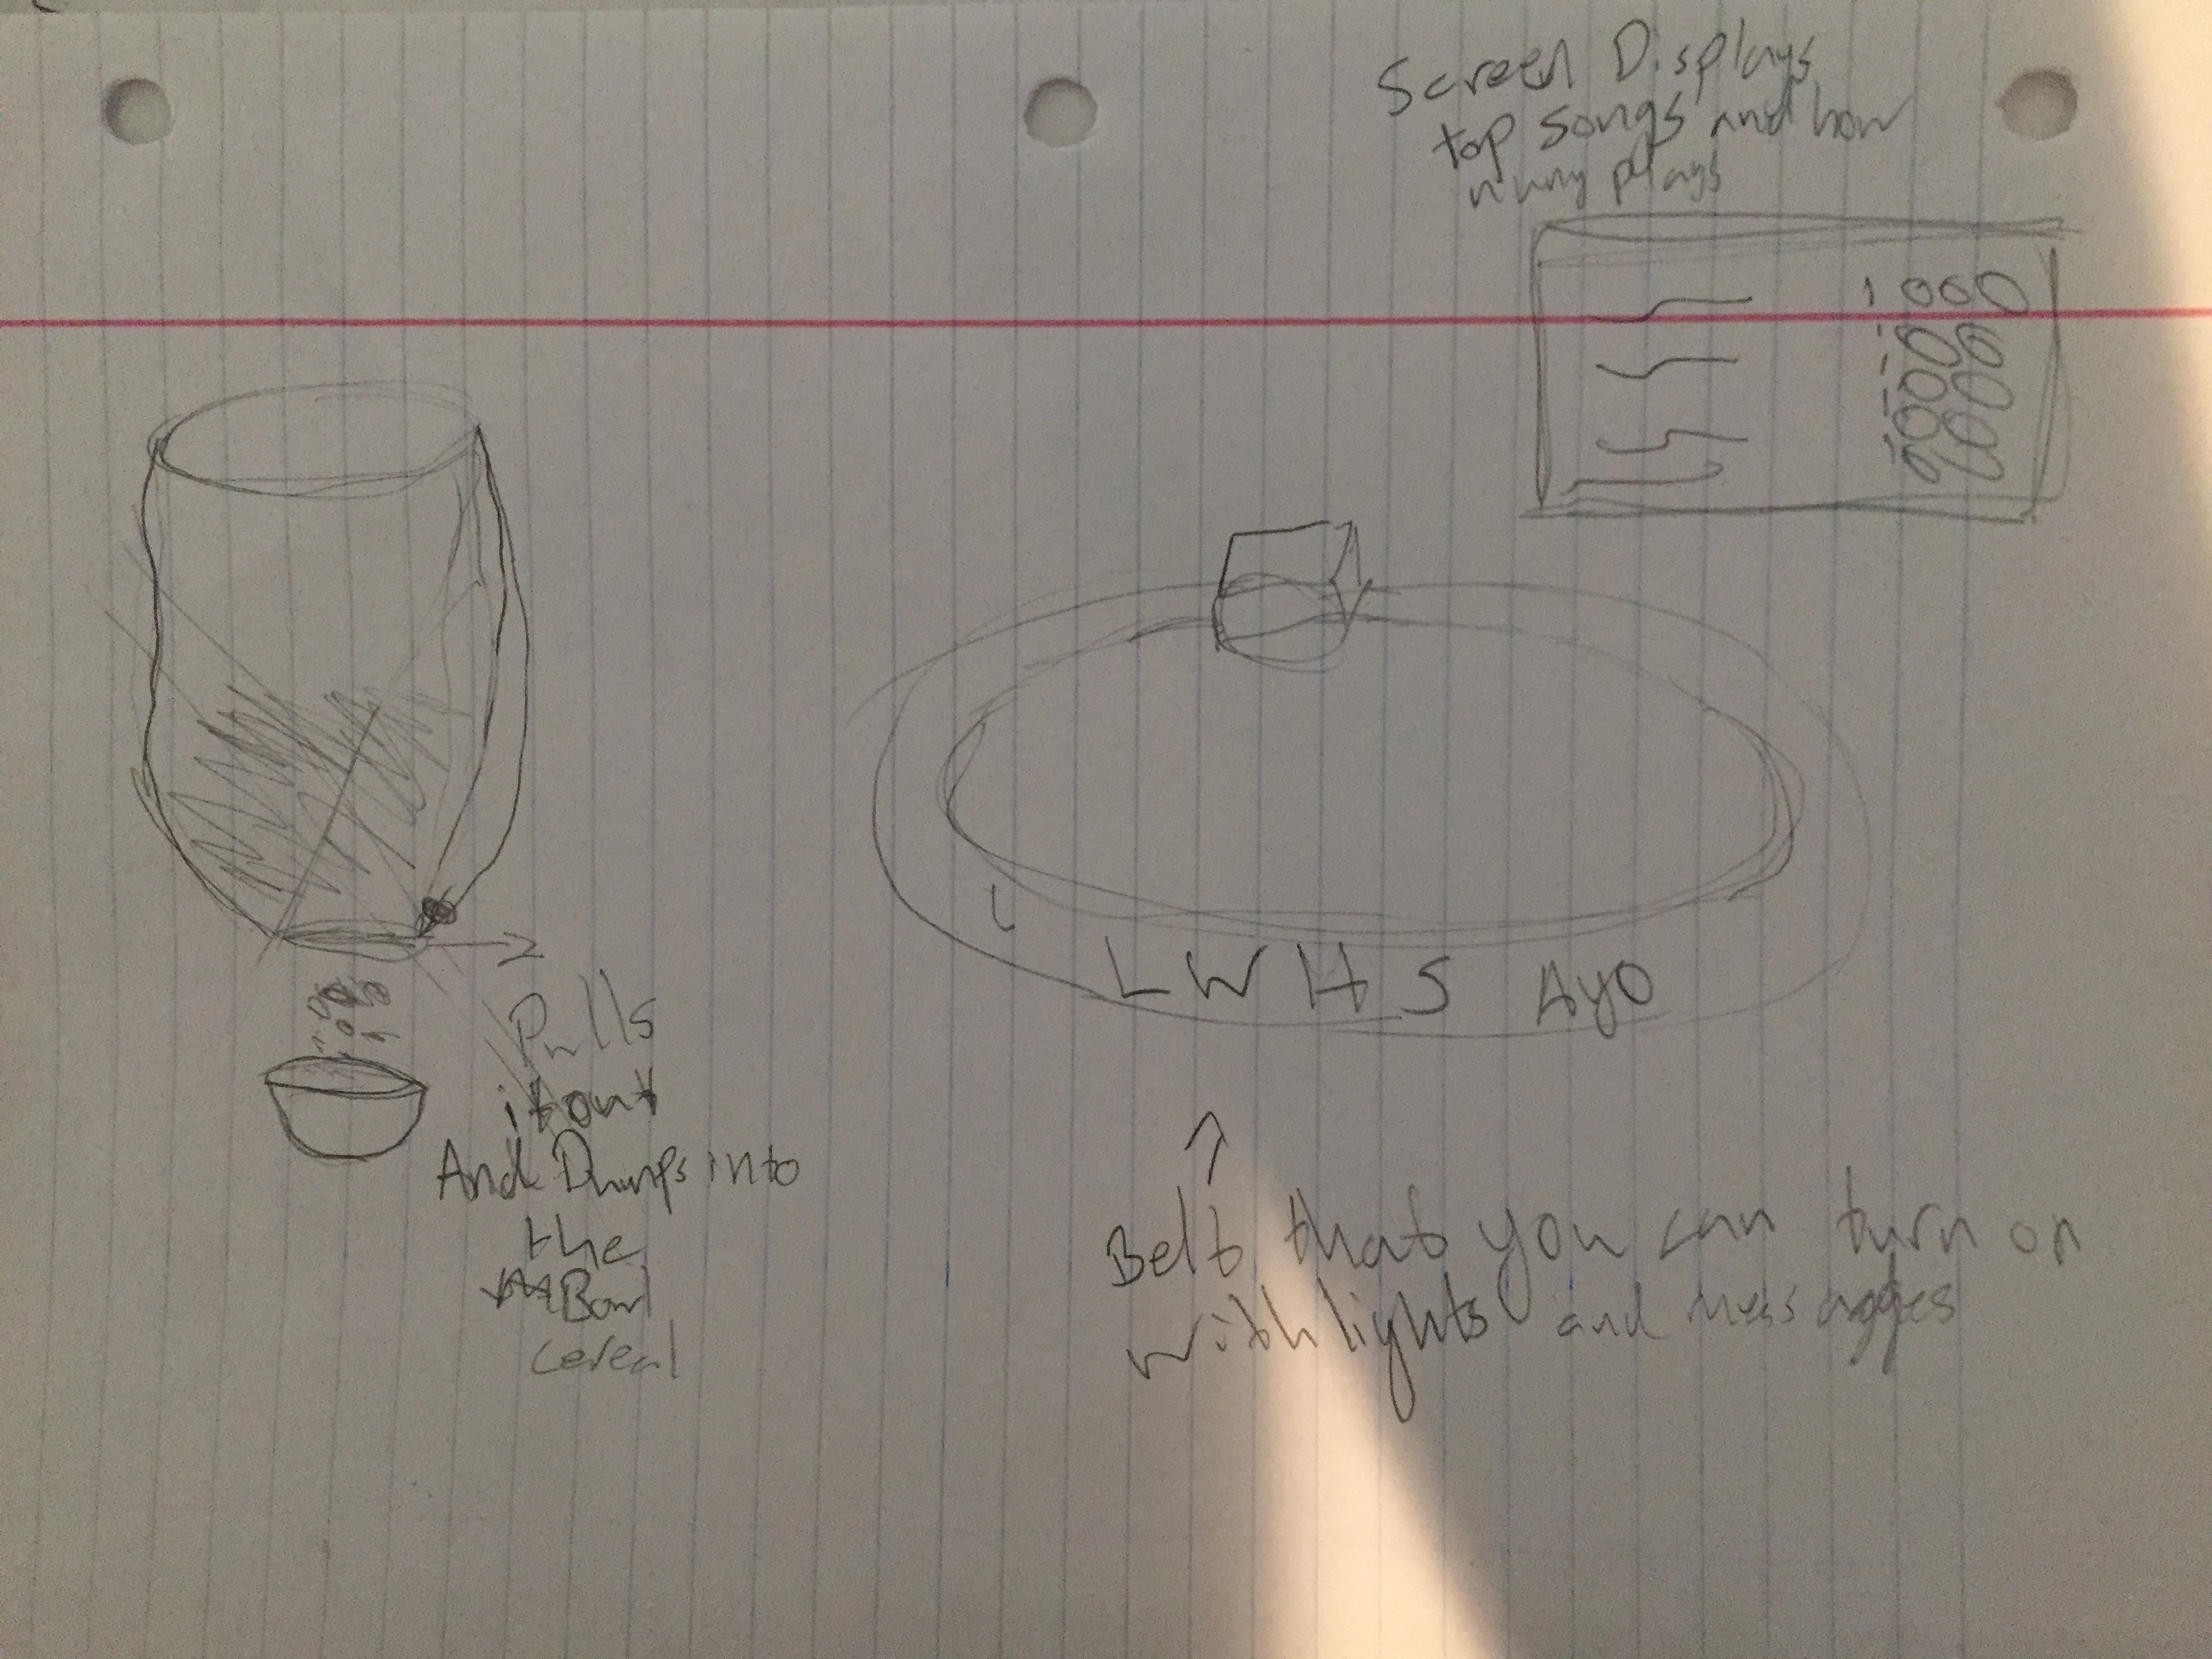 Screen Displays
top songs and how
many plays
1000
L W H S Ayo
Pulls
it out
And Dumps into
the
Bowl
cereal
Belt that you can turn on
with lights and messages